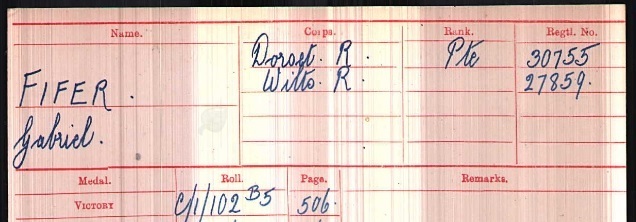 Name. Corps. Rank. Regtl. No.
Dorset. R. Pte 30755
Wilts. R. 27859.
FIFER.
Gabriel.
Medal. Roll. Page. Remarks.
VICTORY C/1/102 B5 506.